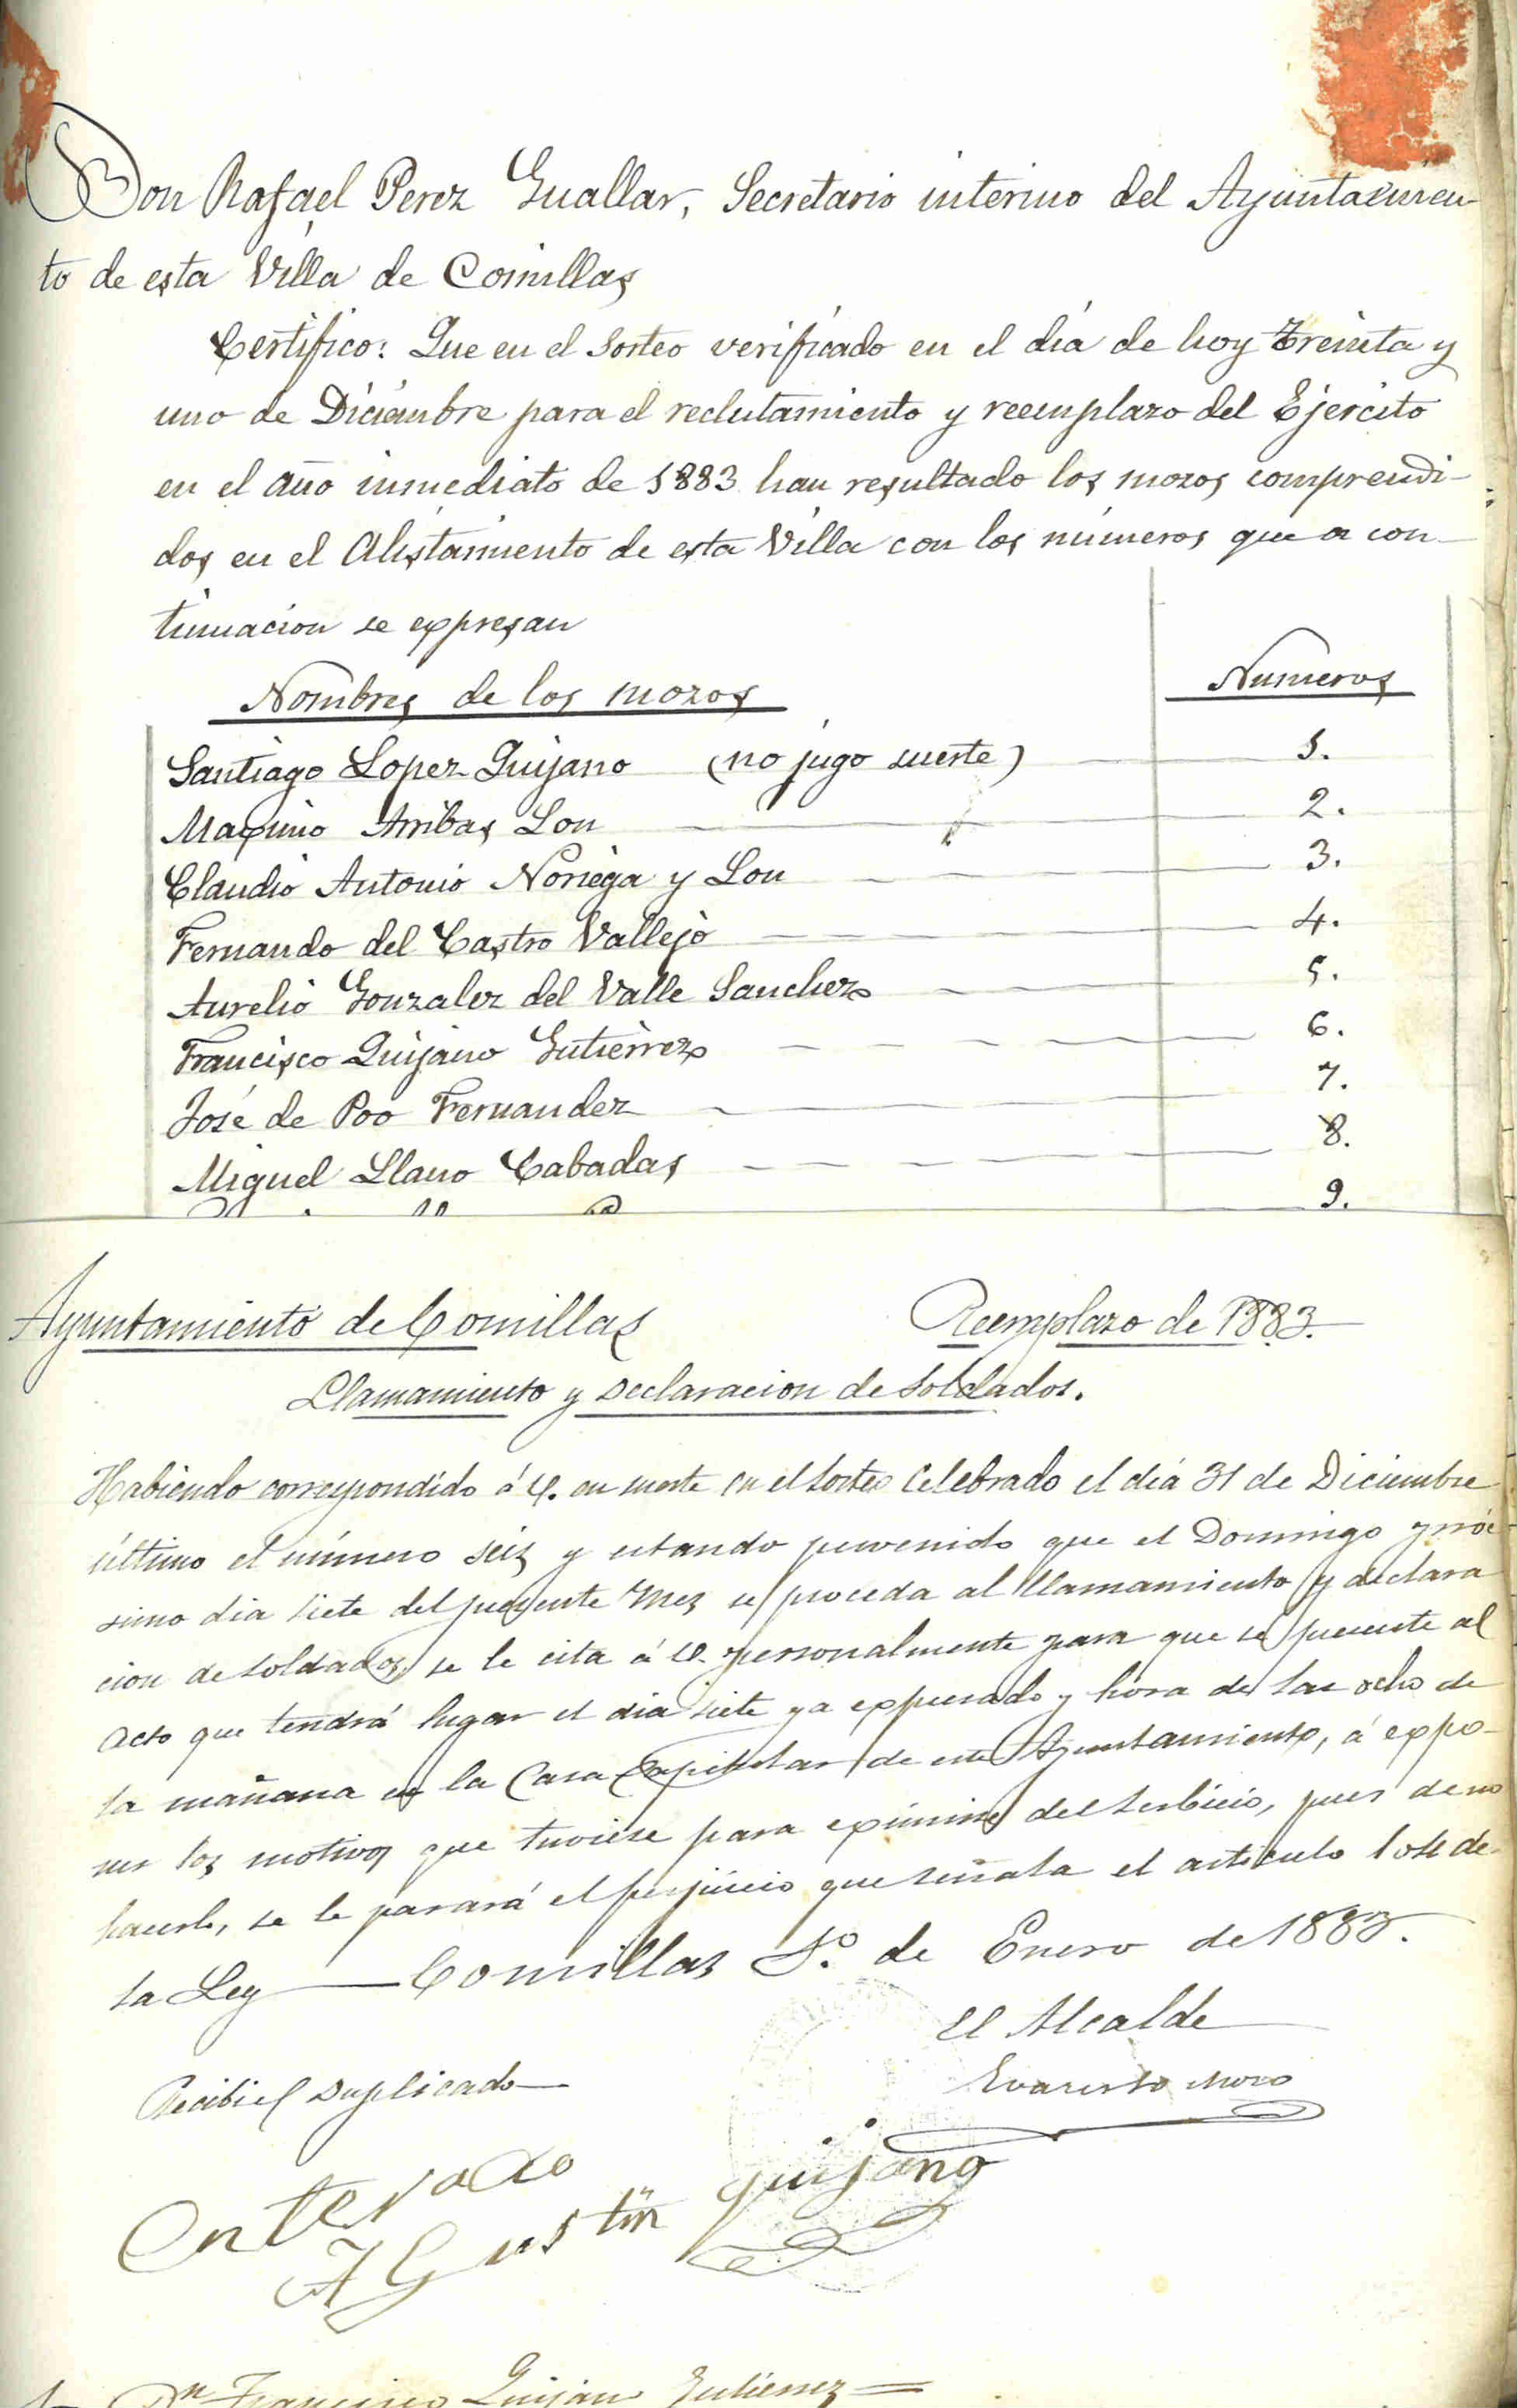 Don Rafael Perez Guallar, Secretario interino del Ayuntamien-
to de esta Villa de Comillas
Certifico: Que en el sorteo verificado en el día de hoy treinta y
uno de Diciembre para el reclutamiento y reemplazo del Ejercito
en el año inmediato de 1883 han resultado los mozos comprendi-
dos en el Alistamiento de esta Villa con los números que a con-
tinuacion se expresan
Nombres de los mozos Numeros
Santiago Lopez Quijano (no jugo suerte) 1.
Maximo Arribas Lon 2.
Claudio Antonio Noriega y Lon 3.
Fernando del Castro Vallejo 4.
Aurelio Gonzalez del Valle Sanchez 5.
Francisco Quijano Gutierrez 6.
José de Poo Fernandez 7.
Miguel Llano Cabadas 8.
9.
Ayuntamiento de Comillas Reemplazo de 1883.
Llamamiento y Declaracion de Soldados.
Habiendo correspondido á V. en suerte en el sorteo Celebrado el día 31 de Diciembre
último el número seis y estando prevenido que el Domingo próc
simo dia siete del presente mes se proceda al llamamiento y declara
cion de soldados, se le cita á V. personalmente para que se presente al
acto que tendrá lugar el dia siete ya expresado y hora de las ocho de
la mañana en la Casa Capitular de este Ayuntamiento, á expo-
ner los motivos que tuviese para eximirse del Serbicio, pues de no
hacerlo, se le parará el perjuicio que señala el articulo 104 de
la Ley Comillas 1º. de Enero de 1883.
El Alcalde
Recibi el Duplicado Evaristo Moro
Enterado
Agustin quijano
Dn Francisco Quijano Gutierrez